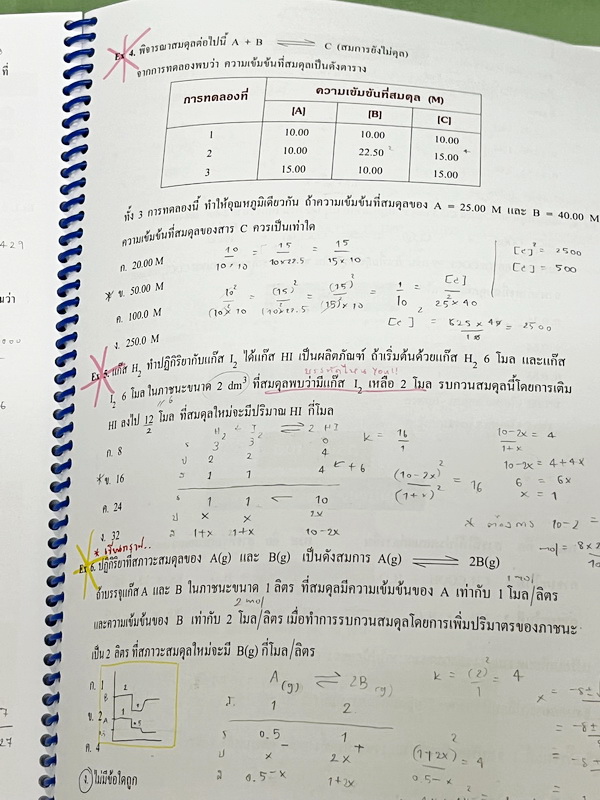 Ex 4. พิจารณาสมดุลต่อไปนี้ A + B ⇌ C (สมการยังไม่ดุล)
จากการทดลองพบว่า ความเข้มข้นที่สมดุลเป็นดังตาราง
การทดลองที่ ความเข้มข้นที่สมดุล (M)
[A] [B] [C]
1 10.00 10.00 10.00
2 10.00 22.50 15.00
3 15.00 10.00 15.00
ทั้ง 3 การทดลองนี้ ทำให้อุณหภูมิเดียวกัน ถ้าความเข้มข้นที่สมดุลของ A = 25.00 M และ B = 40.00 M
ความเข้มข้นที่สมดุลของสาร C ควรเป็นเท่าใด
ก. 20.00 M
ข. 50.00 M
ค. 100.0 M
ง. 250.0 M
[C]² = 2500
[C] = 500
Ex 5. แก๊ส H₂ ทำปฏิกิริยากับแก๊ส I₂ ได้แก๊ส HI เป็นผลิตภัณฑ์ ถ้าเริ่มต้นด้วยแก๊ส H₂ 6 โมล และแก๊ส
I₂ 6 โมล ในภาชนะขนาด 2 dm³ ที่สมดุลพบว่ามีแก๊ส I₂ เหลือ 2 โมล รบกวนสมดุลนี้โดยการเติม
HI ลงไป 12 โมล ที่สมดุลใหม่จะมีปริมาณ HI กี่โมล
ก. 8
ข. 16
ค. 24
ง. 32
H₂ + I₂ ⇌ 2HI
3 3 0
2 2 4
1 1 4 + 6
1 1 10
x x 2x
1+x 1+x 10-2x
K = 16/1
(10-2x)²/(1+x)² = 16
10-2x/1+x = 4
10-2x = 4+4x
6 = 6x
x = 1
Ex 6. ปฏิกิริยาที่สภาวะสมดุลของ A(g) และ B(g) เป็นดังสมการ A(g) ⇌ 2B(g)
ถ้าบรรจุแก๊ส A และ B ในภาชนะขนาด 1 ลิตร ที่สมดุลมีความเข้มข้นของ A เท่ากับ 1 โมล/ลิตร
และความเข้มข้นของ B เท่ากับ 2 โมล/ลิตร เมื่อทำการรบกวนสมดุลโดยการเพิ่มปริมาตรของภาชนะ
เป็น 2 ลิตร ที่สภาวะสมดุลใหม่จะมี B(g) กี่โมล/ลิตร
ก. 1
ข. 2
ค. 4
ง. ไม่มีข้อใดถูก
A(g) ⇌ 2B(g)
1 2
0.5 1
x 2x
0.5-x 1+2x
K = (2)²/1 = 4
(1+2x)²/0.5-x = 4